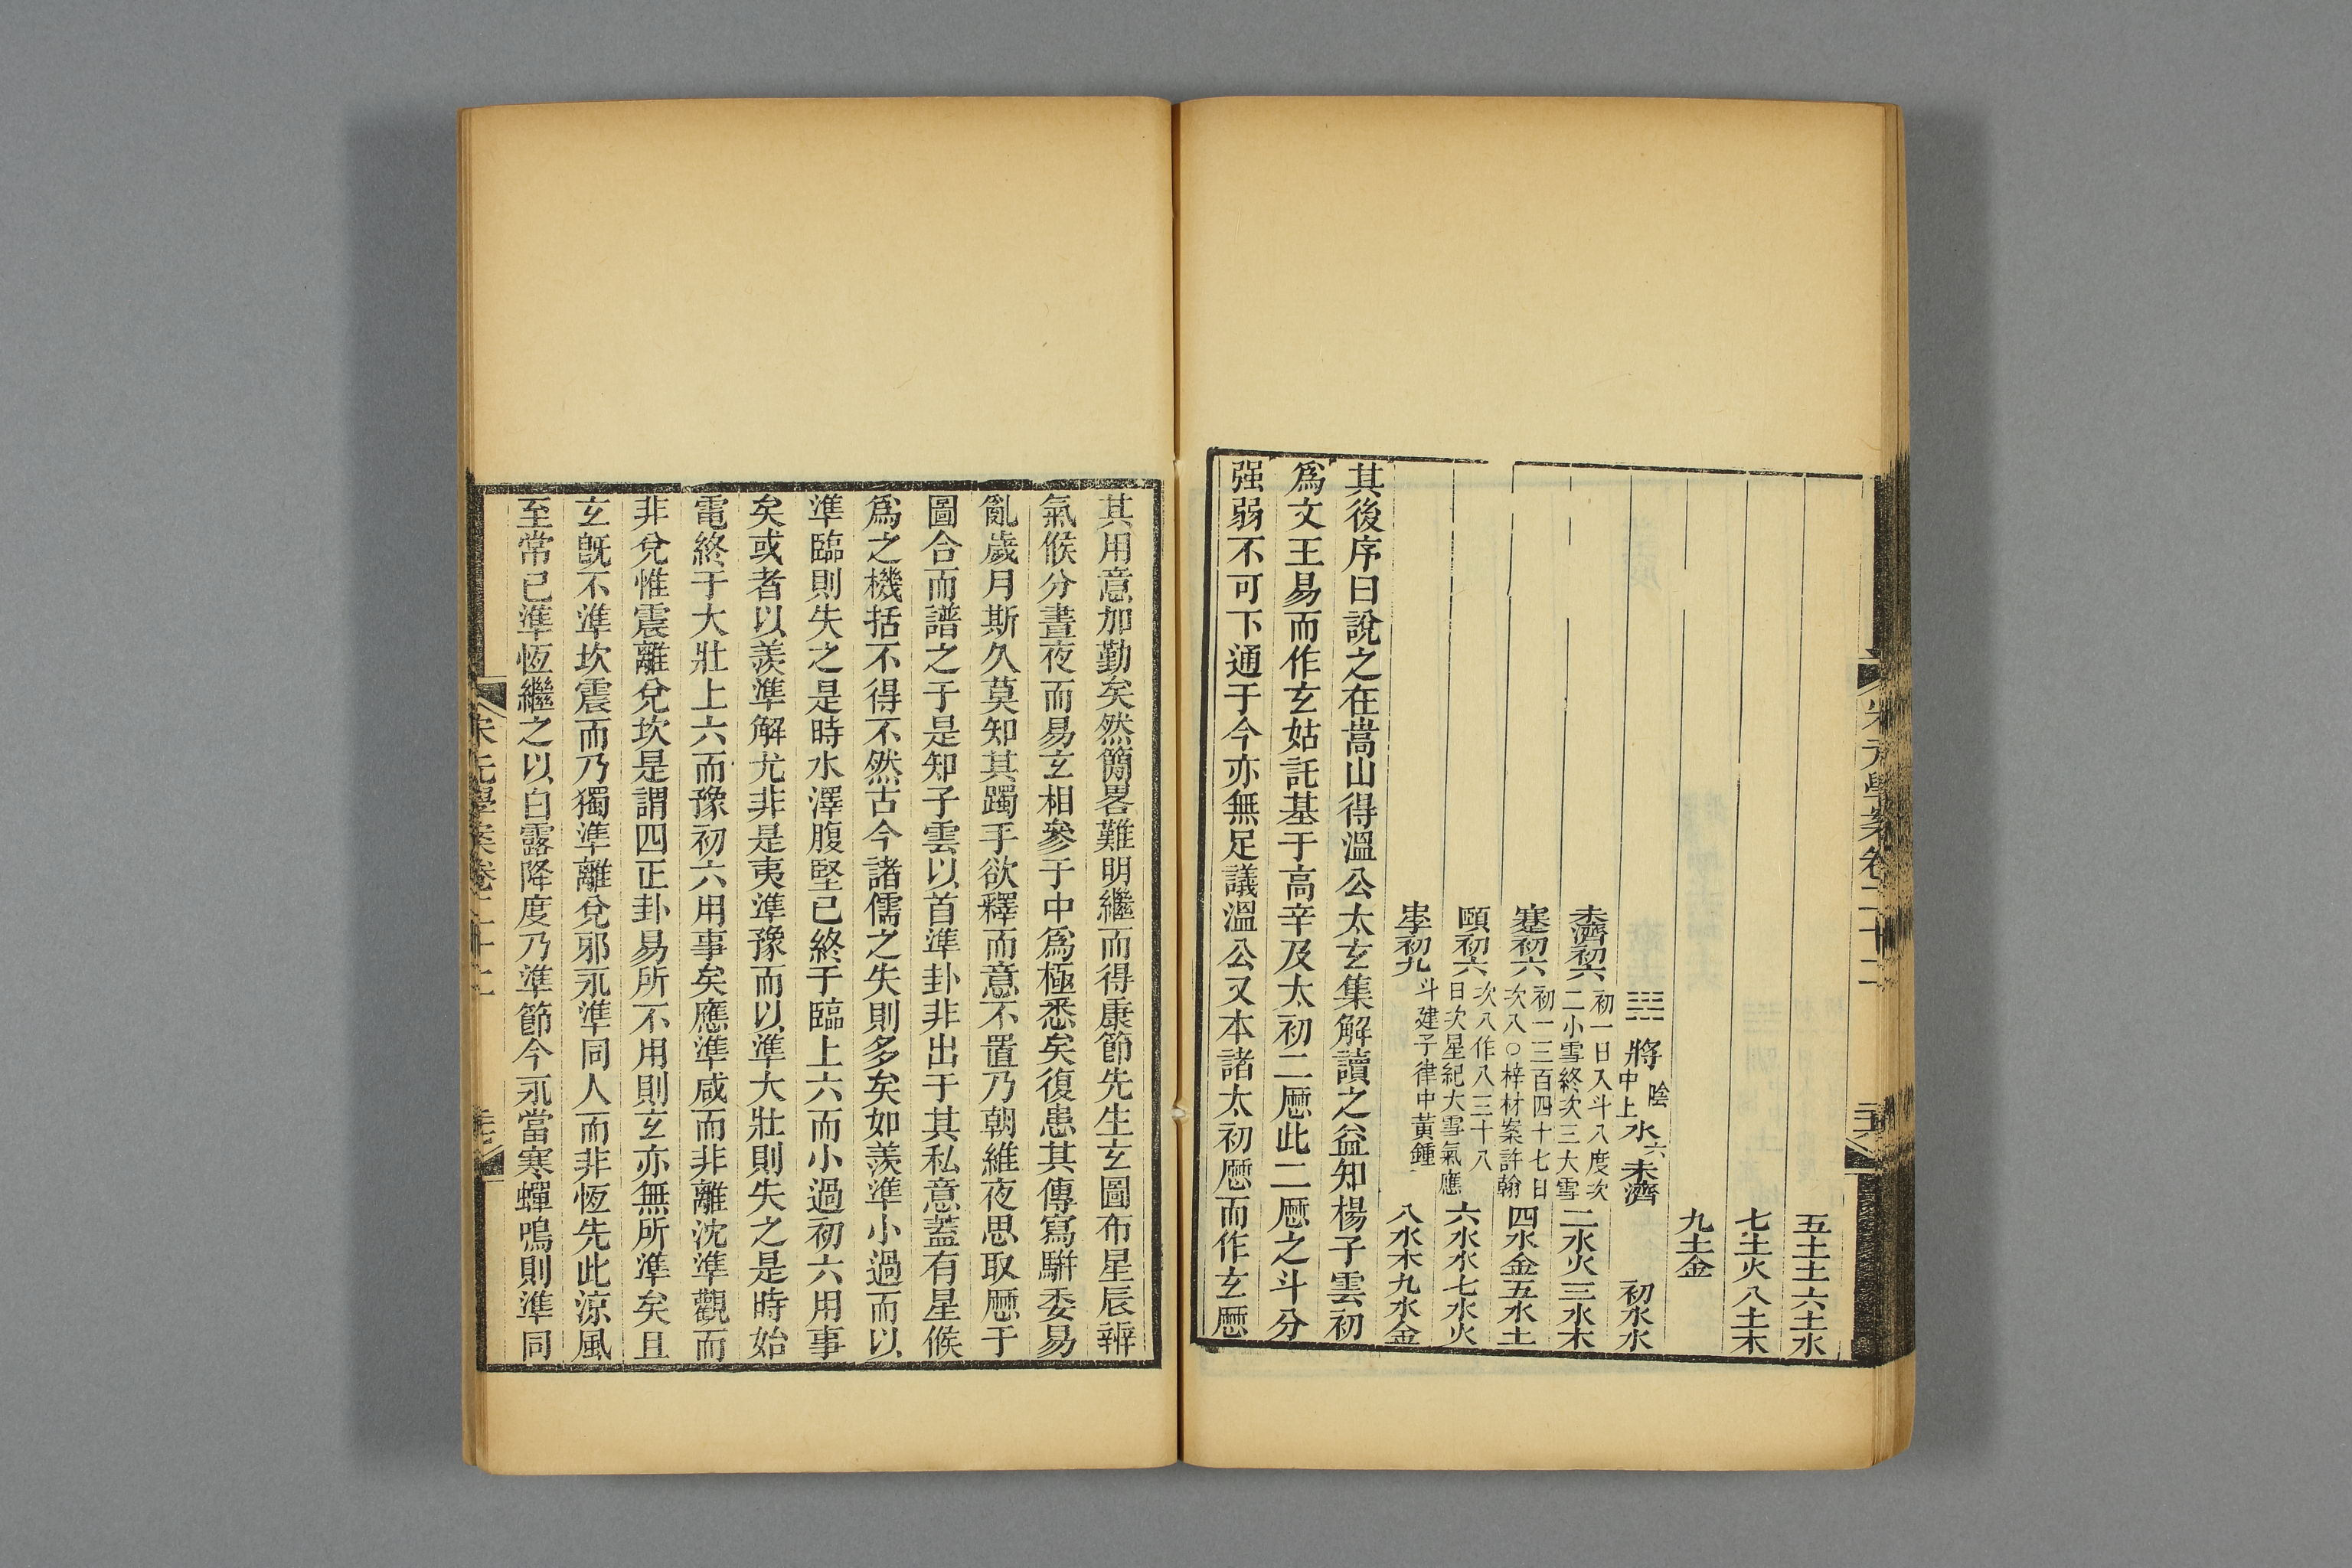 五土土六土水
七土火八土木
九土金
將 陰中上 水六 未濟 初水水
未濟初六 初一日入斗八度次二小雪終次三大雪 二水火三水木
蹇初六 初一三百四十七日次八○梓材案許翰 四水金五水土
頤初六 次八作八三十八日次星紀大雪氣應 六水水七水火
中孚初九 斗建子律中黃鍾 八水木九水金
其後序曰說之在嵩山得溫公太玄集解讀之益知楊子雲初
爲文王易而作玄姑託基于高辛及太初二厤此二厤之斗分
强弱不可下通于今亦無足議溫公又本諸太初厤而作玄厤
其用意加勤矣然簡畧難明繼而得康節先生玄圖布星辰辨
氣候分晝夜而易玄相參于中爲極悉矣復患其傳寫騈委易
亂歲月斯久莫知其躅手欲釋而意不置乃朝維夜思取厤于
圖合而譜之于是知子雲以首準卦非出于其私意蓋有星候
爲之機括不得不然古今諸儒之失則多矣如羨準小過而以
準臨則失之是時水澤腹堅已終于臨上六而小過初六用事
矣或者以羨準解尤非是夷準豫而以準大壯則失之是時始
電終于大壯上六而豫初六用事矣應準咸而非離沈準觀而
非兌惟震離兌坎是謂四正卦易所不用則玄亦無所準矣且
玄旣不準坎震而乃獨準離兌邪永準同人而非恆先此涼風
至常已準恆繼之以白露降度乃準節今永當寒蟬鳴則準同
宋元學案卷二十二